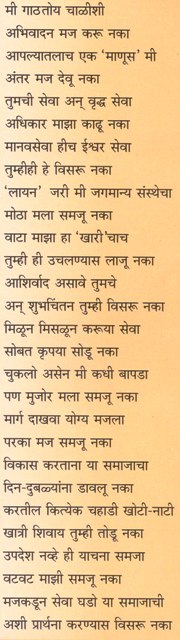 मी गाठतोय चाळीशी
अभिवादन मज करू नका
आपल्यातलाच एक ‘माणूस’ मी
अंतर मज देवू नका
तुमची सेवा अन् वृद्ध सेवा
अधिकार माझा काढू नका
मानवसेवा हीच ईश्वर सेवा
तुम्हीही हे विसरू नका
‘लायन’ जरी मी जगमान्य संस्थेचा
मोठा मला समजू नका
वाटा माझा हा ‘खारी’चाच
तुम्ही ही उचलण्यास लाजू नका
आशिर्वाद असावे तुमचे
अन् शुभचिंतन तुम्ही विसरू नका
मिळून मिसळून करूया सेवा
सोबत कृपया सोडू नका
चुकलो असेन मी कधी बापडा
पण मुजोर मला समजू नका
मार्ग दाखवा योग्य मजला
परका मज समजू नका
विकास करताना या समाजाचा
दिन-दुबळ्यांना डावलू नका
करतील कित्येक चहाडी खोटी-नाटी
खात्री शिवाय तुम्ही तोडू नका
उपदेश नव्हे ही याचना समजा
वटवट माझी समजू नका
मजकडून सेवा घडो या समाजाची
अशी प्रार्थना करण्यास विसरू नका